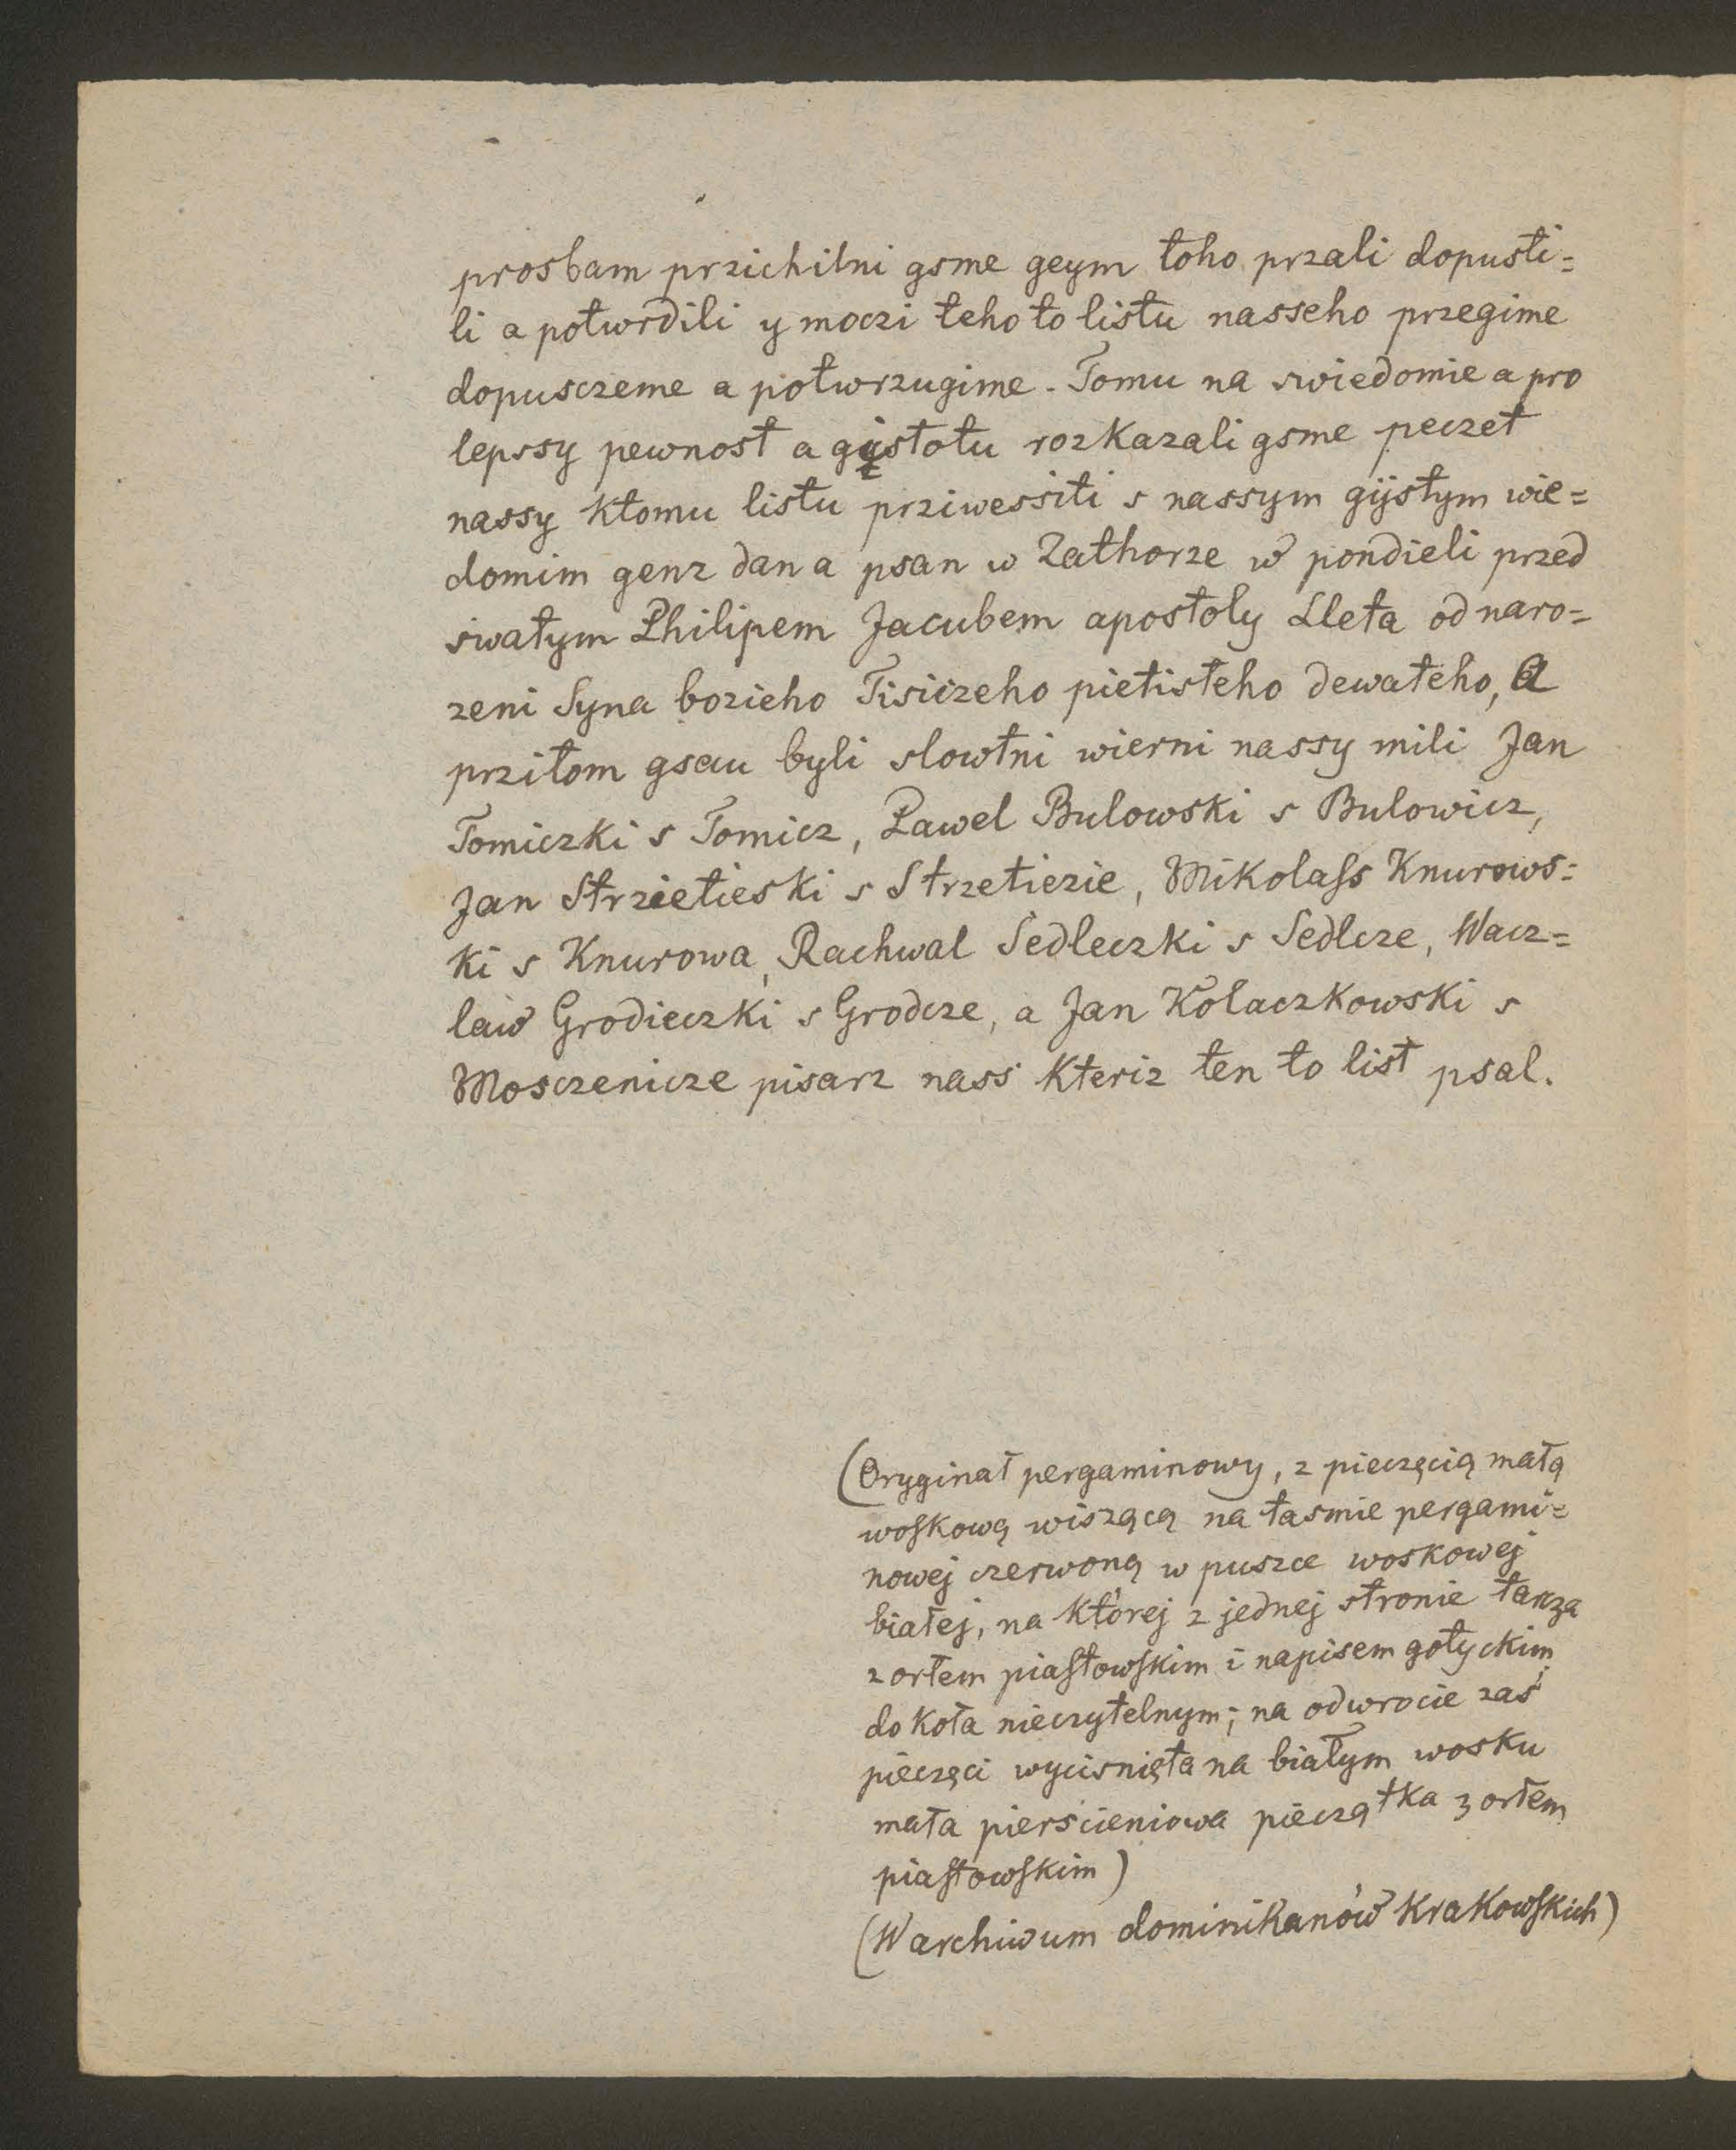 prosbam przichilni gsme geym toho przali dopusti=
li a potwrdili y moczi teho to listu nasseho przegime
dopusczeme a potwrzugime. Tomu na swiedomie a pro
lepssy pewnost a gystotu rozkazali gsme peczet
nassy ktomu listu prziwessiti s nassym gijstym wie=
domim genz dan a psan w Zathorze w pondieli przed
swatym Philipem Jacubem apostoly Lleta od naro=
zeni Syna bozieho Tisiczeho pietisteho dewateho, A
przitom gsau byli slowtni wierni nassy mili Jan
Tomiczki s Tomicz, Pawel Bulowski s Bulowicz,
Jan Strzietieski s Strzetiezie, Mikolass Knurows=
ki s Knurowa, Rachwal Sedleczki s Sedlcze, Wacz=
law Grodieczki s Grodcze, a Jan Kolaczkowski s
Mosczenicze pisarz nass kteriz ten to list psal.
(Oryginał pergaminowy, z pieczęcią małą
woskową wiszącą na tasmie pergami=
nowej czerwoną w puszce woskowej
białej, na której z jednej stronie tarcza
z orłem piastowskim i napisem gotyckim
do koła nieczytelnym; na odwrocie zaś
pieczęci wycisnięta na białym wosku
mała pierscieniowa pieczątka z orłem
piastowskim)
(W archiwum dominikanów krakowskich)